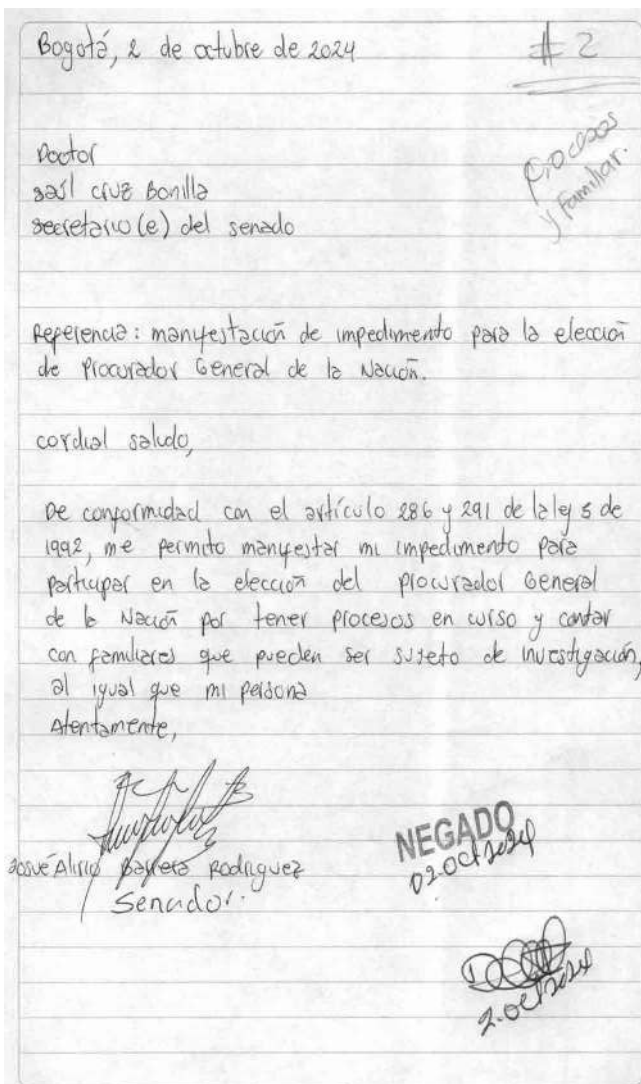 Bogotá, 2 de octubre de 2024
# 2
Procesos
y Familiar.
Doctor
saúl cruz Bonilla
secretario (e) del senado
Referencia: manifestación de impedimento para la elección
de Procurador General de la Nación.
cordial saludo,
De conformidad con el artículo 286 y 291 de la ley 5 de
1992, me permito manifestar mi impedimento para
participar en la elección del procurador General
de la Nación por tener procesos en curso y contar
con familiares que pueden ser sujeto de investigación,
al igual que mi persona
Atentamente,
Josué Alirio Barrera Rodriguez
Senador.
NEGADO
02.Oct 2024
2.oct 2024